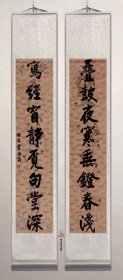 疊鼓夜寒無鐙春淺
寫經窗靜覓句堂深